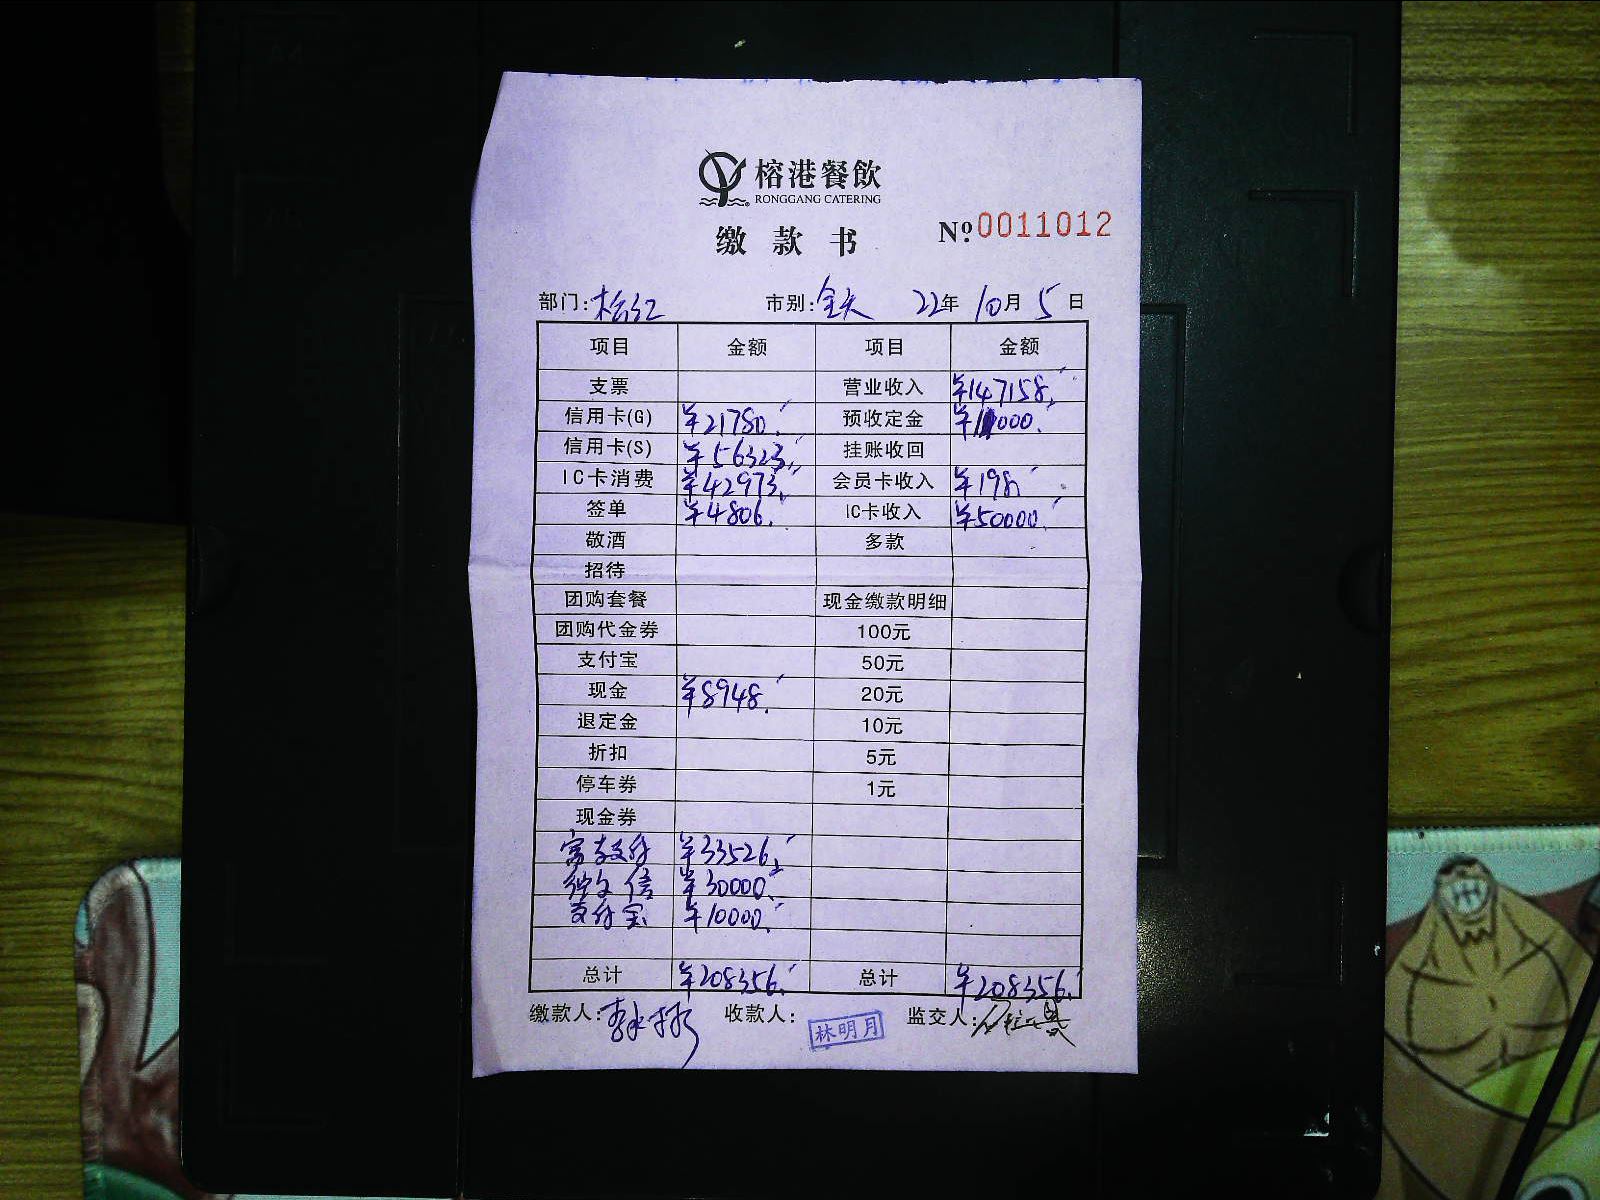 榕港餐飲
RONGGANG CATERING
缴款书 Nº.0011012
部门: 市别:全天 22年 10月 5日
项目 金额 项目 金额
支票 营业收入 ¥147158.
信用卡(G) ¥21780. 预收定金 ¥11000.
信用卡(S) ¥56323. 挂账收回
IC卡消费 ¥42973. 会员卡收入 ¥198.
签单 ¥4806. IC卡收入 ¥50000.
敬酒 多款
招待
团购套餐 现金缴款明细
团购代金券 100元
支付宝 50元
现金 ¥8948. 20元
退定金 10元
折扣 5元
停车券 1元
现金券
富友支付 ¥33526.
微信 ¥30000.
支付宝 ¥10000.
总计 ¥208356. 总计 ¥208356.
缴款人: 收款人: 林明月 监交人: